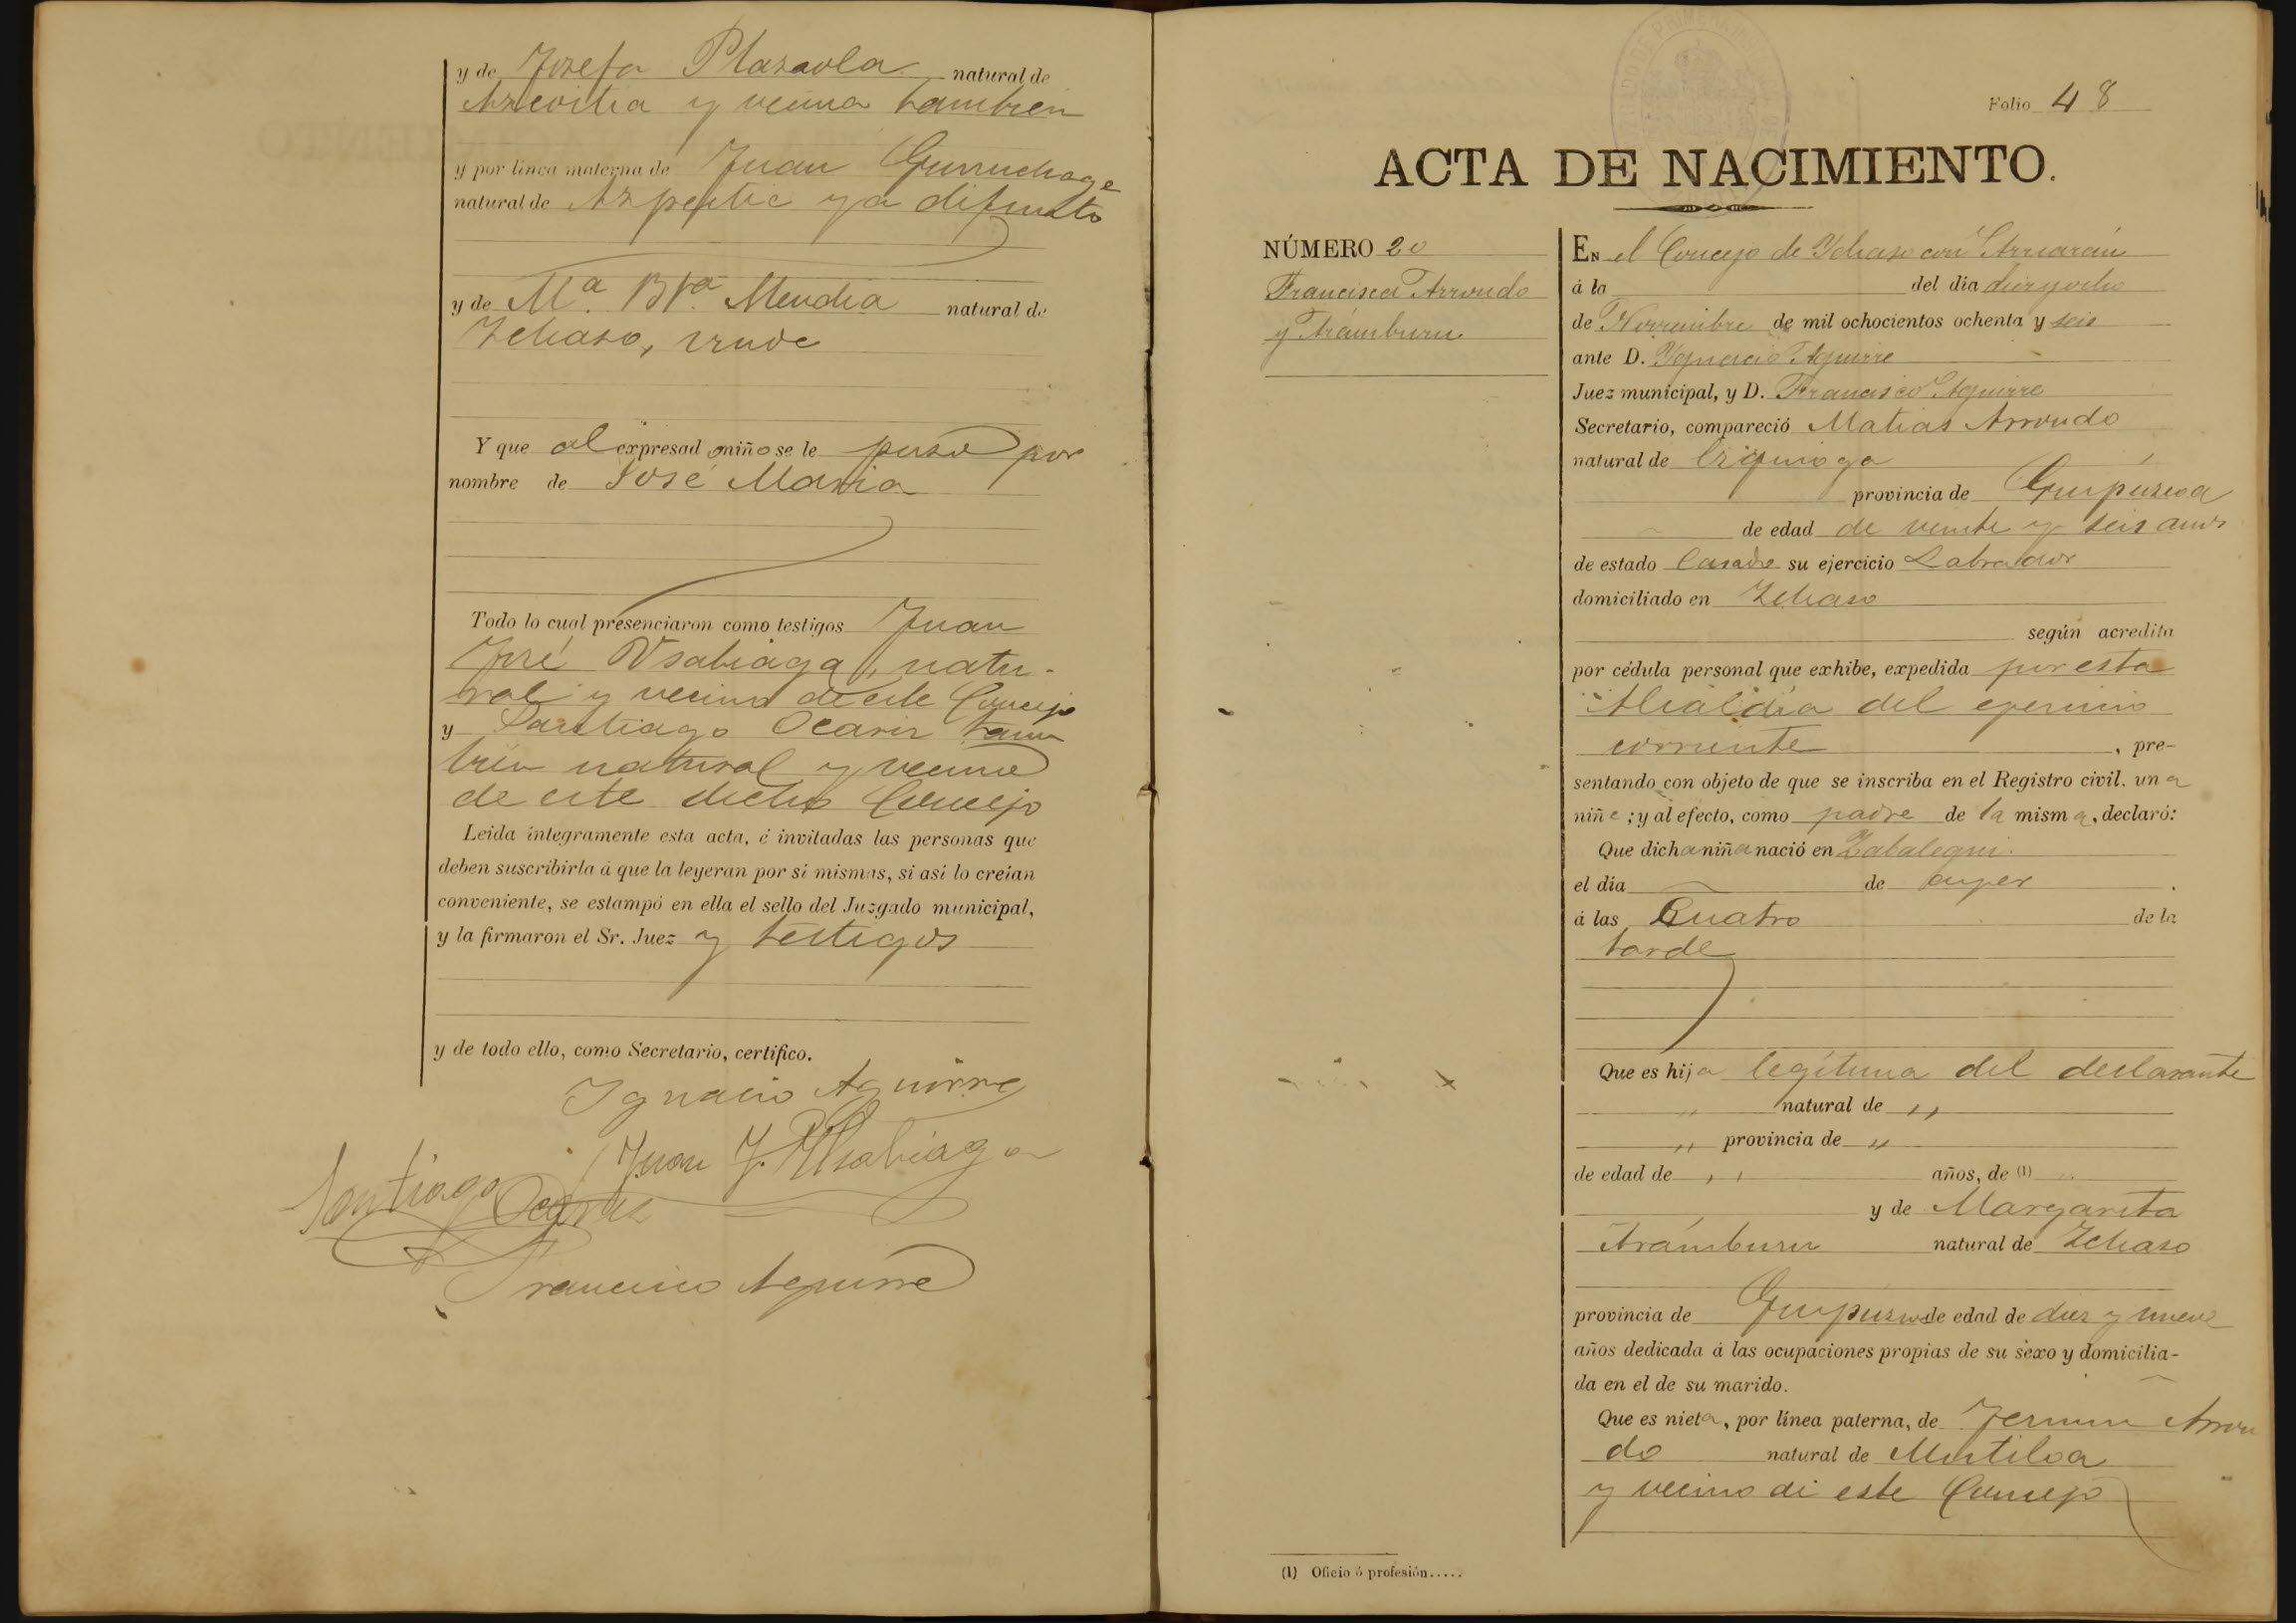 y de Josefa Plazaola natural de
Azcoitia y vecina tambien
y por línea materna de Juan Gurruchaga
natural de Azpeitia ya difunto
y de Mª. Bᵗᵃ. Mendia natural de
Ichaso, viuda
Y que al expresado niño se le puso por
nombre de José Maria
Todo lo cual presenciaron como testigos Juan
José Usabiaga, natu-
ral y vecino de este Concejo
y Santiago Ocariz tam
bien natural y vecino
de este dicho Concejo
Leida íntegramente esta acta, é invitadas las personas que
deben suscribirla á que la leyeran por sí mismas, si así lo creían
conveniente, se estampó en ella el sello del Juzgado municipal,
y la firmaron el Sr. Juez y testigos
y de todo ello, como Secretario, certifico.
Ignacio Aguirre
Juan J. Usabiaga
Santiago Ocariz
Francisco Aguirre
Folio 48
ACTA DE NACIMIENTO.
NÚMERO 20
Francisca Arrondo
y Arámburu
EN el Concejo de Ichaso con Arriarán
á la del dia diez y ocho
de Noviembre de mil ochocientos ochenta y seis
ante D. Ignacio Aguirre
Juez municipal, y D. Francisco Aguirre
Secretario, compareció Matias Arrondo
natural de Ezquioga
provincia de Guipúzcoa
de edad de veinte y seis años
de estado Casado su ejercicio Labrador
domiciliado en Ichaso
según acredita
por cédula personal que exhibe, expedida por esta
Alcaldía del ejercicio
corriente, pre-
sentando con objeto de que se inscriba en el Registro civil. una
niña; y al efecto, como padre de la misma, declaró:
Que dicha niña nació en Zabalegui.
el día de ayer.
á las Cuatro de la
tarde
Que es hija legítima del declarante
,, natural de ,,
,, provincia de ,,
de edad de ,, años, de (1) ,,
y de Margarita
Arámburu natural de Ichaso
provincia de Guipúzcoa de edad de diez y nueve
años dedicada á las ocupaciones propias de su sexo y domicilia-
da en el de su marido.
Que es nieta, por línea paterna, de Fermin Arron
do natural de Mutiloa
y vecino de este Concejo
(1) Oficio ó profesión.....